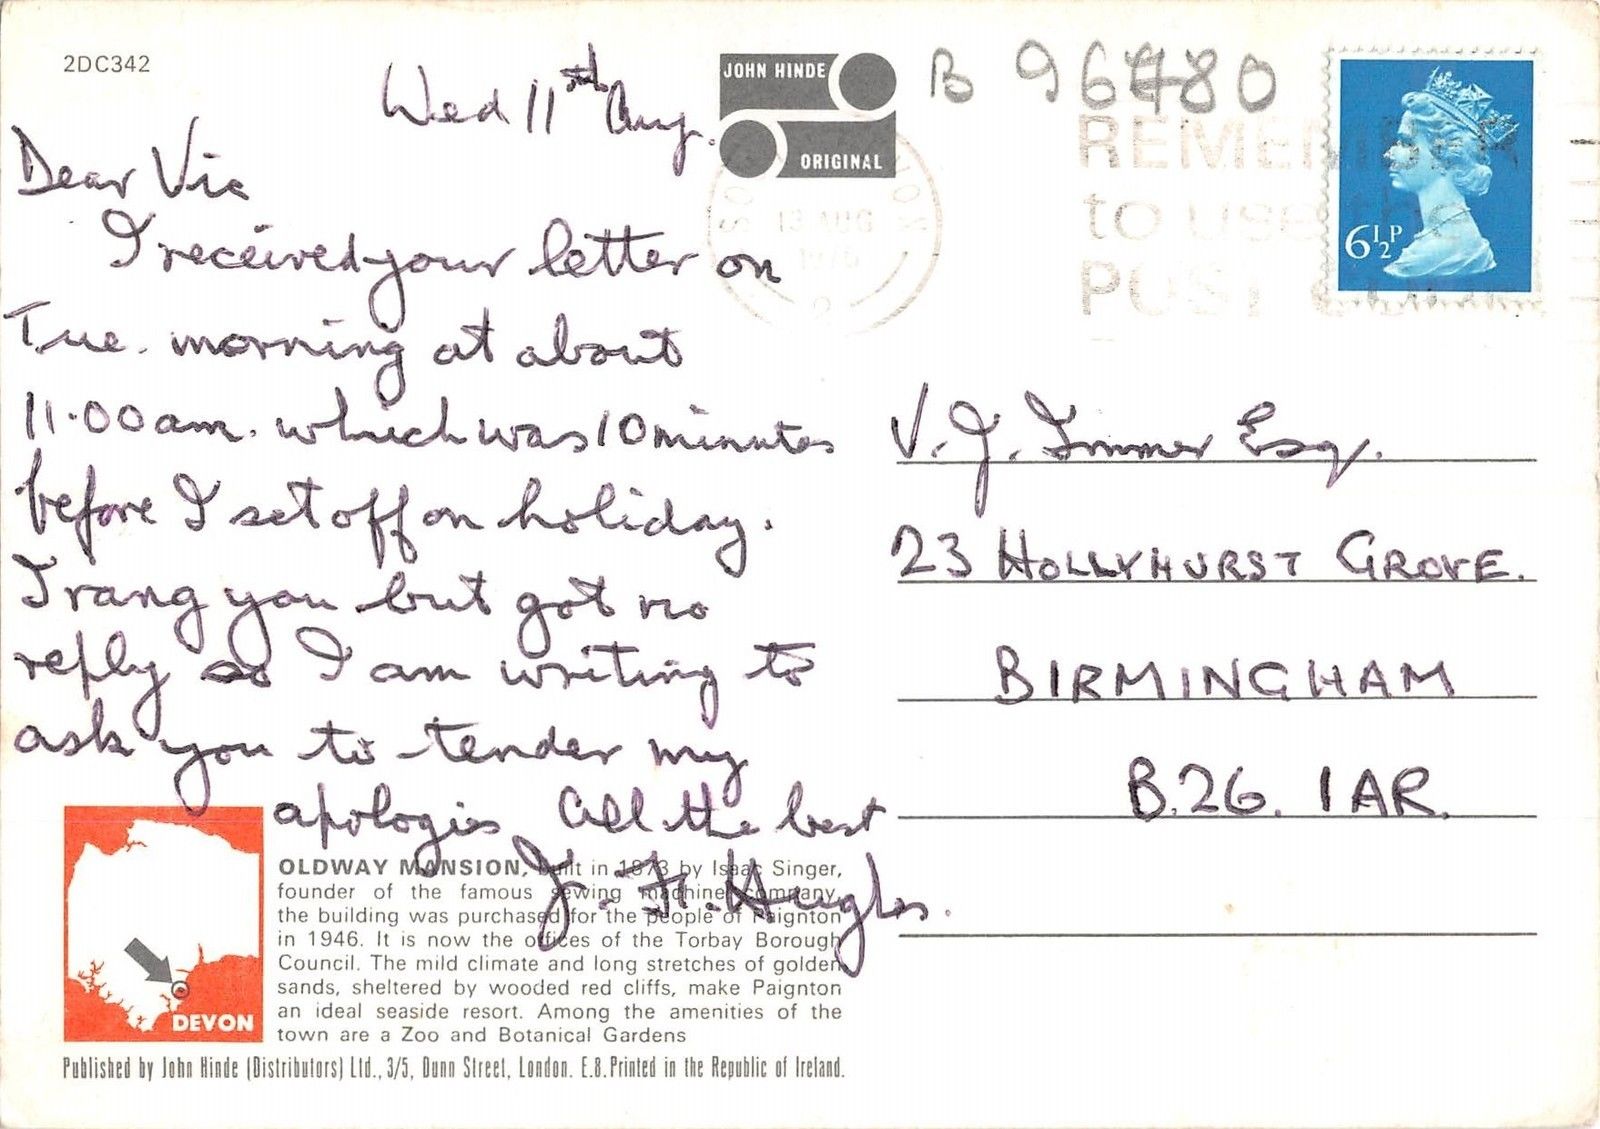 2DC342
Wed 11th Aug.
JOHN HINDE
ORIGINAL
B 96480
13 AUG
1976
REMEMBER
to use the
POST
6½P
Dear Vic
I received your letter on
Tue. morning at about
11.00am. which was 10 minutes
before I set off on holiday.
I rang you but got no
reply so I am writing to
ask you to tender my
apologies All the best
J. H. Hughes.
V. J. Immer Esq.
23 HOLLYHURST GROVE.
BIRMINGHAM
B.26. 1AR.
DEVON
OLDWAY MANSION, built in 1873 by Isaac Singer,
founder of the famous sewing machine company,
the building was purchased for the people of Paignton
in 1946. It is now the offices of the Torbay Borough
Council. The mild climate and long stretches of golden
sands, sheltered by wooded red cliffs, make Paignton
an ideal seaside resort. Among the amenities of the
town are a Zoo and Botanical Gardens
Published by John Hinde (Distributors) Ltd., 3/5, Dunn Street, London. E.8. Printed in the Republic of Ireland.